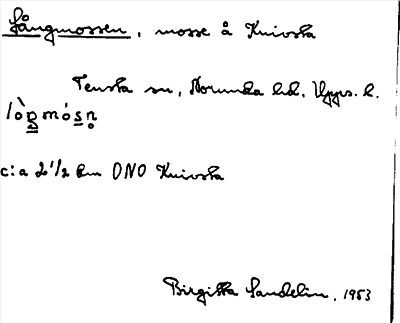 Långmossen, mosse å Knivsta
Tensta sn, Norunda hd, Upps. l.
lòŋmósn̥
c:a 2 1/2 km ONO Knivsta
Birgitta Sandelin, 1953